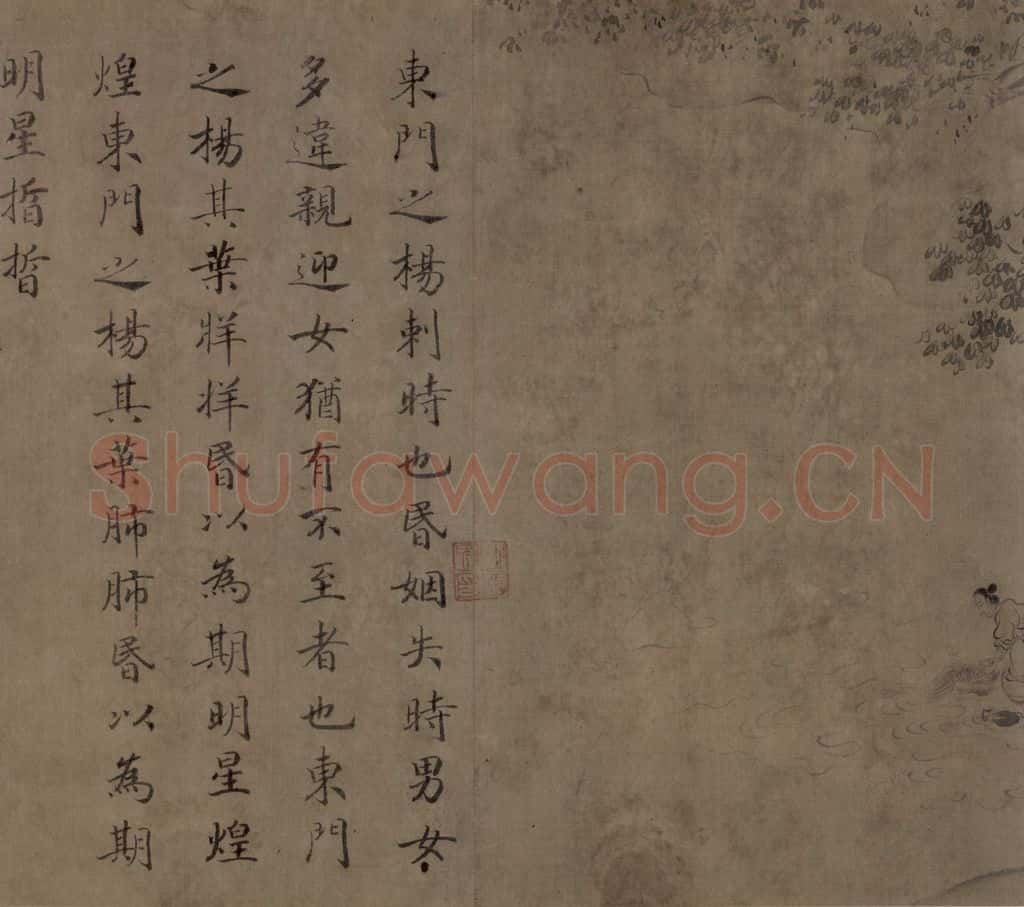 東門之楊刺時也昬姻失時男女
多違親迎女猶有不至者也東門
之楊其葉牂牂昬以為期明星煌
煌東門之楊其葉肺肺昬以為期
明星晢晢
Shufawang.CN